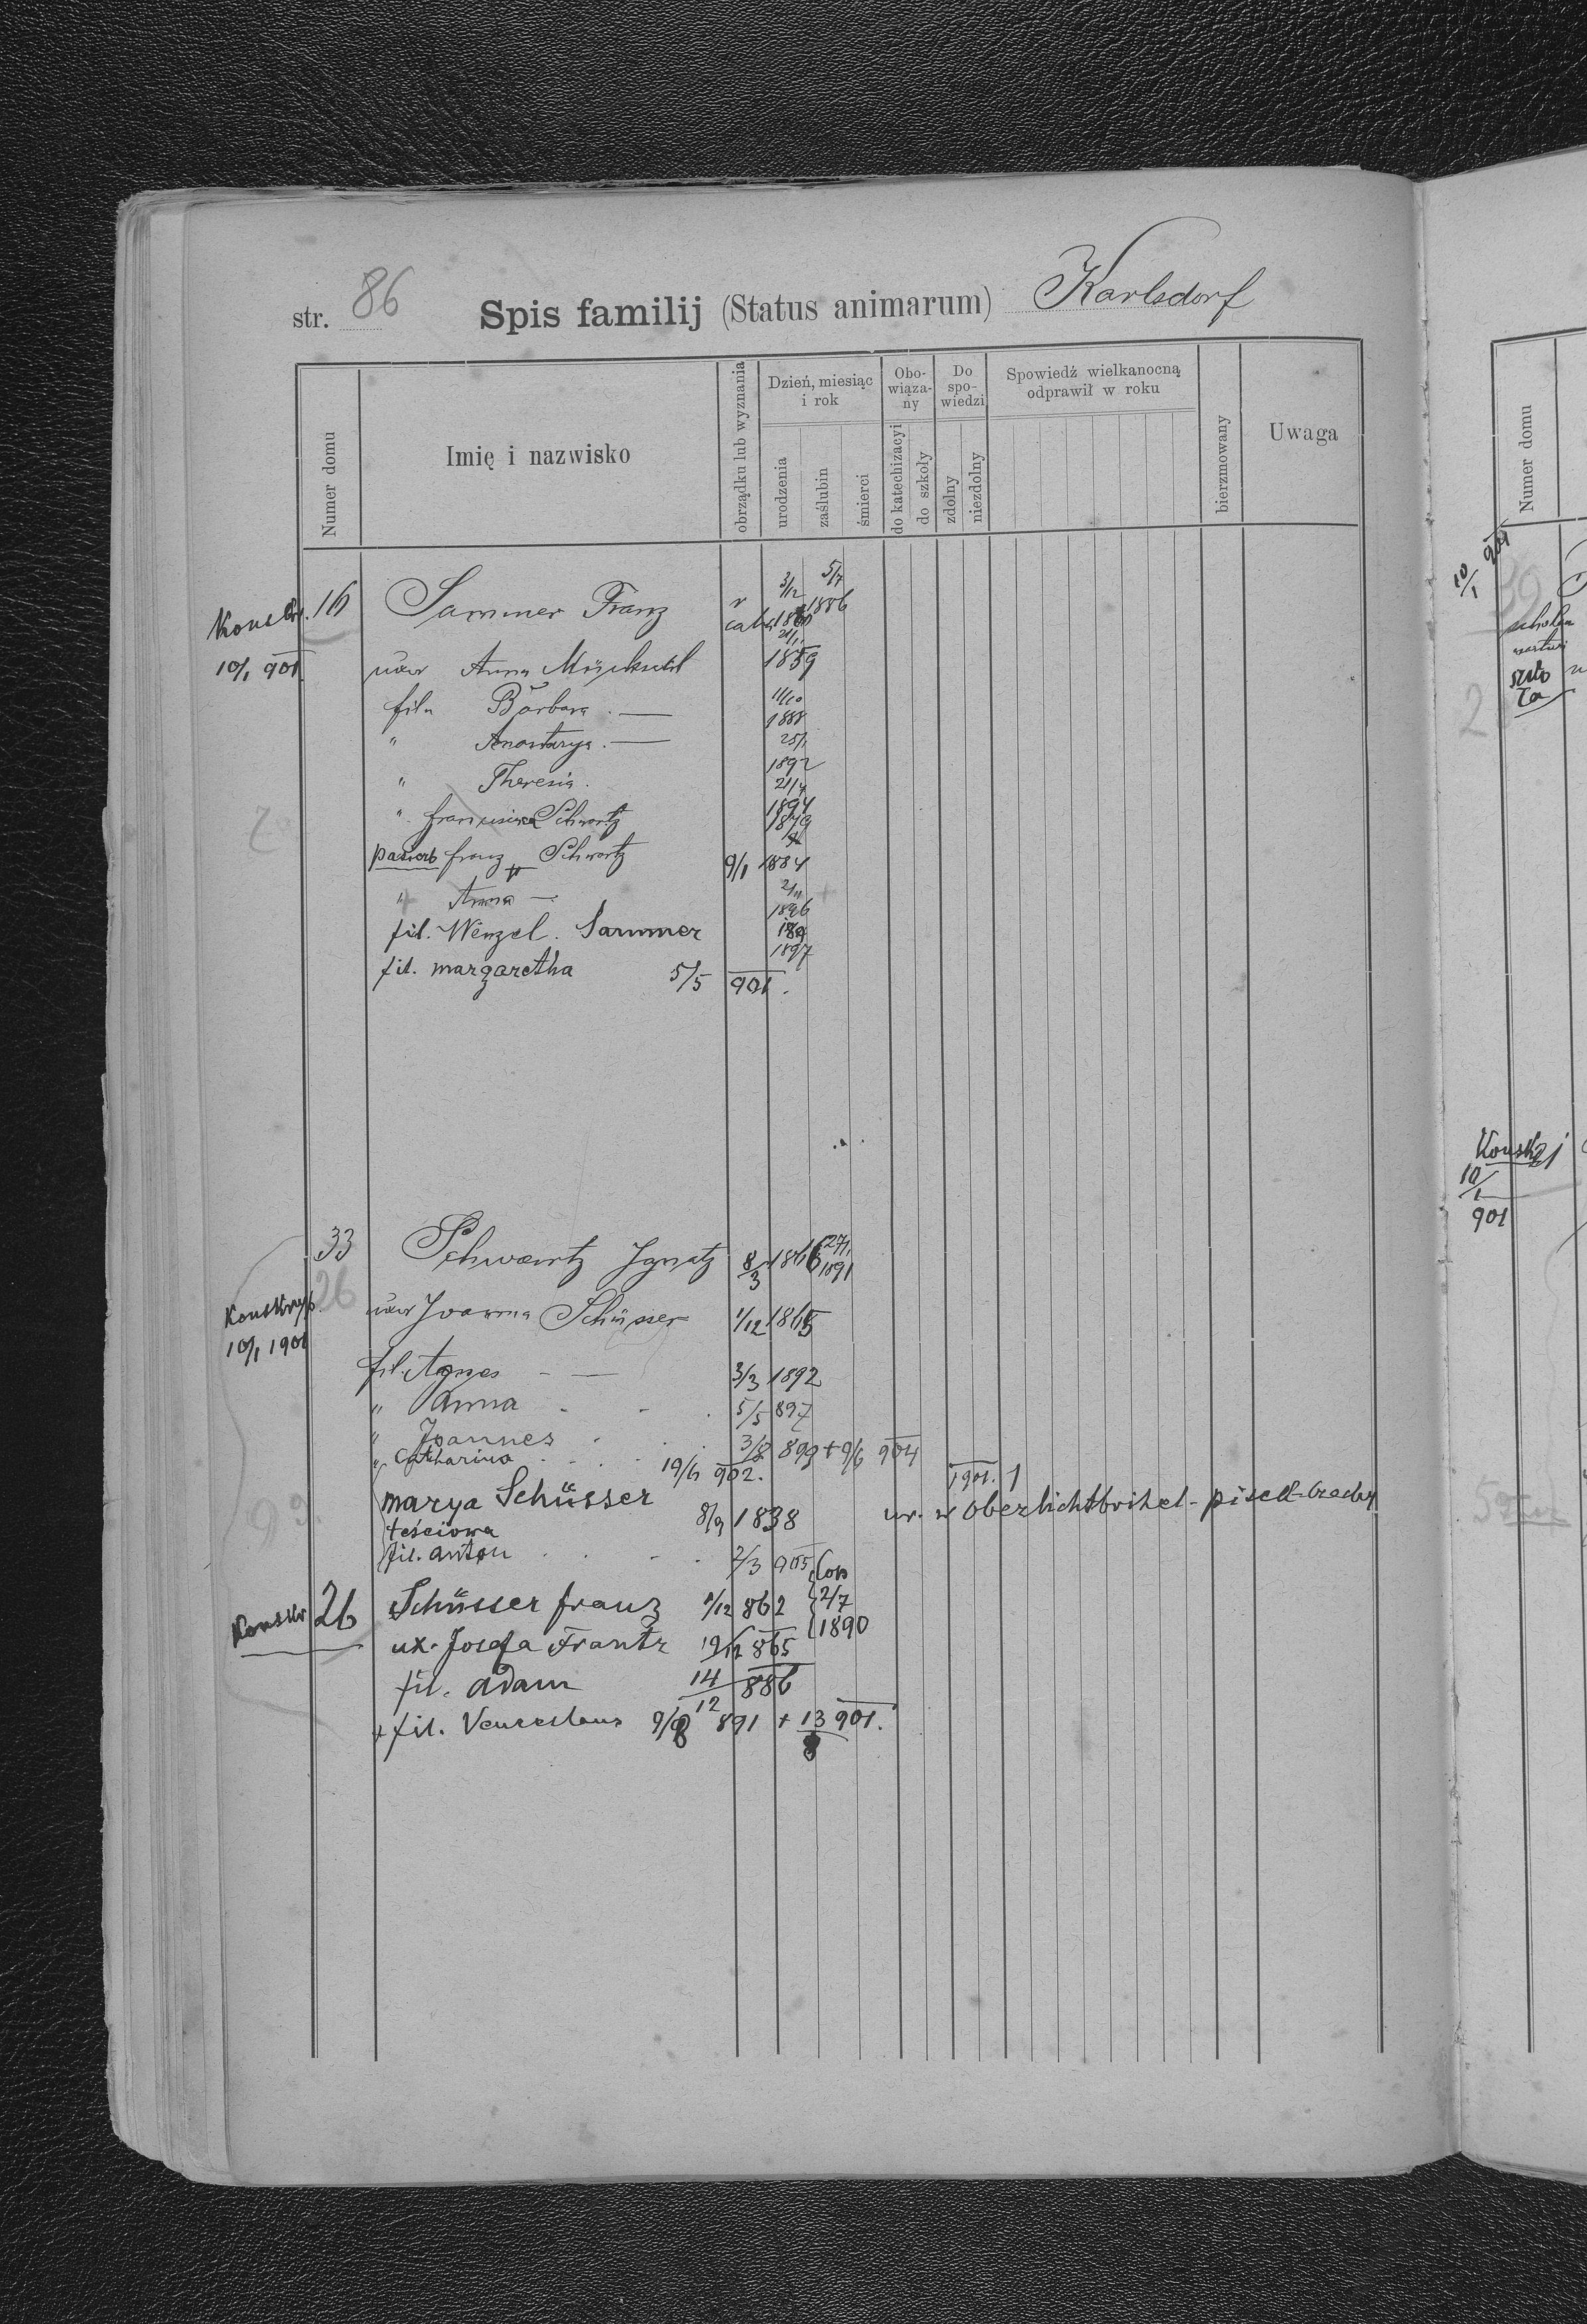 str. 86 Spis familij (Status animarum) Karlsdorf
Numer domu
Imię i nazwisko
obrządku lub wyznania
Dzień, miesiąc i rok
urodzenia
zaślubin
śmierci
Obo-wiąza-ny
do katechizacyi
do szkoły
Do spo-wiedzi
zdolny
niezdolny
Spowiedź wielkanocną odprawił w roku
bierzmowany
Uwaga
16 Sammer Franz 3/12 5/7 1886
10/1 901 uxor Anna 1859
filia Barbara . — 11/10 1888
" . — 25/1 1892
" Theresia . 21/7 1894
" Schwartz 1879
pasierb franz Schwartz 9/1 1884
" Anna — 2/11 1896
fil. Wenzel . Sammer 1897
fil. margaretha 5/5 901 .
33 Schwartz Ignatz 8/3 1866 27/1 1891
26
10/1 1901 uxor Joanna Schüsser 1/12 1865
fil. Agnes - — 3/3 1892
" Anna - - . 5/5 897
" Joannes . . . 3/8 899 + 9/6 904
" Catharina . . . 19/4 902.
marya Schüsser 8/9 1838 1901. 1
teściowa ur. w
fil. anton . . - . 2/3 905
Konskr 26 Schüsser franz 1/12 862 Cop 2/7 1890
ux. Josefa Frantz 19/12 865
fil. adam 14/12 886
+ fil. Venceslaus 9/8 891 + 13/8 901.
Numer domu
10/1 901
39
2
10/1
901